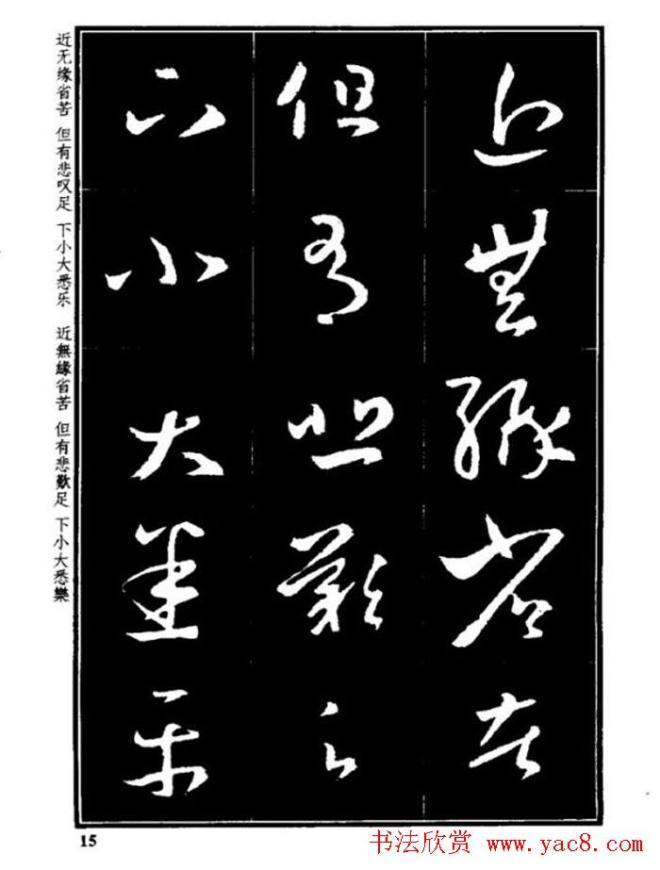 近無緣省苦
但有悲歎足
下小大悉平
近无缘省苦 但有悲叹足 下小大悉乐 近無緣省苦 但有悲歎足 下小大悉樂
15
书法欣赏 www.yac8.com